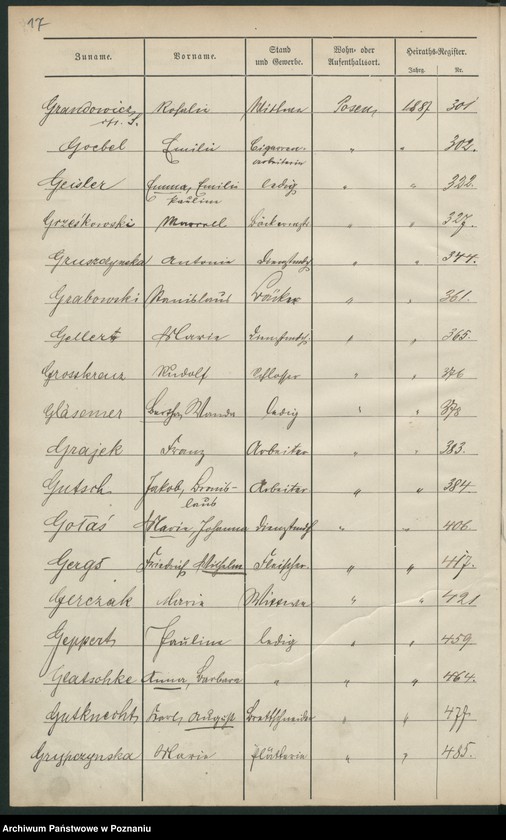 17
Zuname. Vorname. Stand und Gewerbe. Wohn- oder Aufenthaltsort. Heiraths-Register.
Jahrg. Nr.
Grandowicz Rosalie Wittwe Posen, 1887 301
Goebel Emilie Cigarren- " " 302.
arbeiterin
Geisler Emma, Emilie ledig " " 322.
Pauline
Grześkowski Marcell " " 327.
Gruszczynska Antonie Dienstmdch " " 344.
Grabowski Stanislaus Bäcker " " 361.
Gellert Marie Dienstmdch. " " 365.
Grosskreuz Rudolf Schlosser " " 376
Gläsemer Bertha, Wanda ledig " " 378
Grajek Franz Arbeiter " " 383.
Gutsch Jakob, Bronis- Arbeiter " " 384.
laus
Gołaś Marie, Johanna Dienstmdch " " 406.
Gergs Friedrich Wilhelm Fleischer " " 417.
Gerczak Marie Wittwe " " 421
Geppert Pauline ledig " " 459
Glatschke Anna, Barbara " " " 464.
Gutknecht Karl, August Brettschneider " " 477.
Marie Plätterin " " 485.
Archiwum Państwowe w Poznaniu